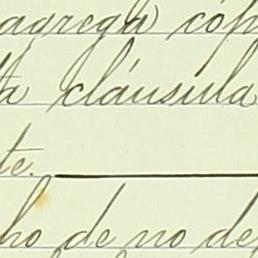 agrega) cóp
ta cláusula
te.
ho de no de